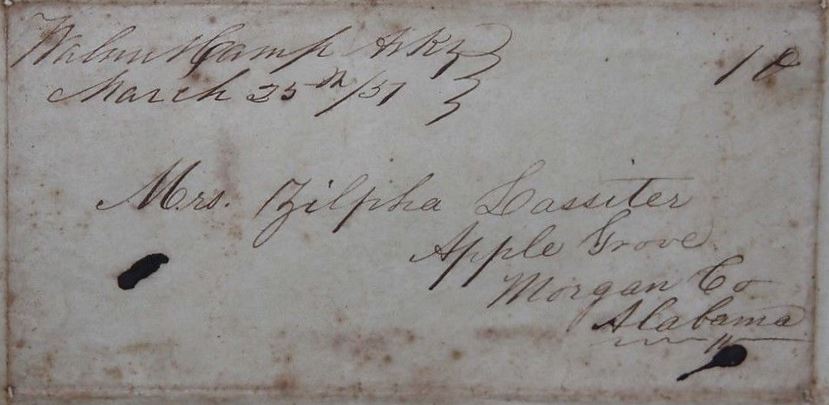 Walnut Camp Arks
March 25th/51
10
Mrs. Zilpha Lassiter
Apple Grove
Morgan Co
Alabama